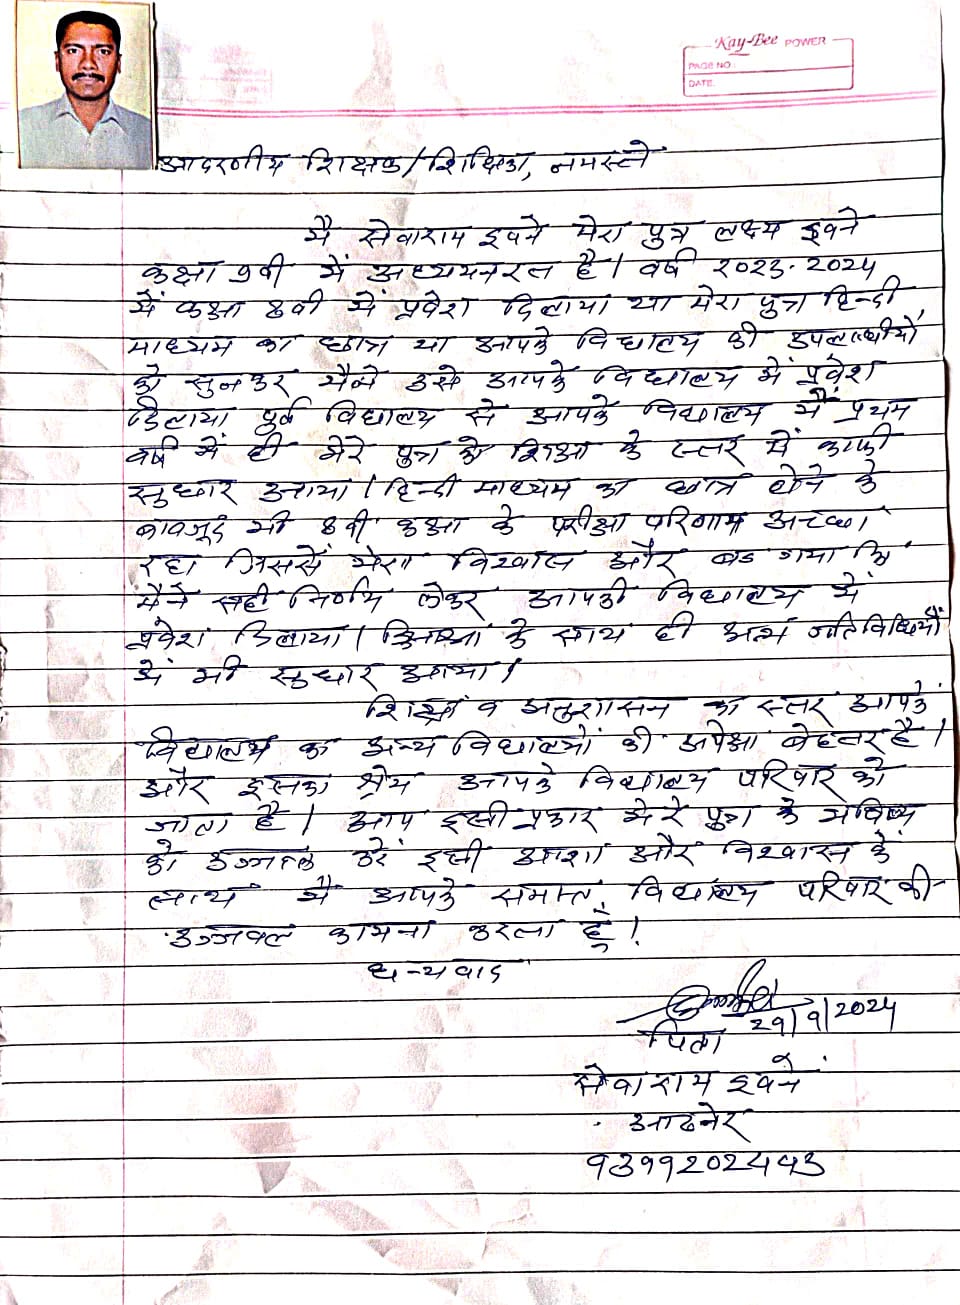 Kay-Bee POWER
PAGE NO
DATE
आदरणीय शिक्षक/शिक्षिका, नमस्ते
मै सेवाराम इवने मेरा पुत्र लक्ष्य इवने
कक्षा 9वी में अध्ययनरत है। वर्ष 2023-2024
में कक्षा 8वी में प्रवेश दिलाया था मेरा पुत्र हिन्दी
माध्यम का छात्र था आपके विद्यालय की उपलब्धीयो
को सुनकर मैने उसे आपके विद्यालय में प्रवेश
दिलाया पुर्व विद्यालय से आपके विद्यालय में प्रथम
वर्ष में ही मेरे पुत्र को शिक्षा के स्तर में काफी
सुधार आया। हिन्दी माध्यम का छात्र होने के
बावजूद भी 8वी कक्षा के परीक्षा परिणाम अच्छा
रहा जिससें मेरा विश्वास और बड गया कि
मैने सही निर्णय लेकर आपकी विद्यालय में
प्रवेश दिलाया। शिक्षा के साथ ही अन्य गतिविधियों
में भी सुधार आया।
शिक्षा व अनुशासन का स्तर आपके
विद्यालय का अन्य विद्यालयों की अपेक्षा बेहतर है।
और इसका श्रेय आपके विद्यालय परिवार को
जाता है। आप इसी प्रकार मेरे पुत्र के भविष्य
को उज्जवल करें इसी आशा और विश्वास के
साथ मै आपके समस्त विद्यालय परिवार की
उज्जवल कामना करता हूँ।
धन्यवाद
29/9/2024
पिता
सेवाराम इवने
आठनेर